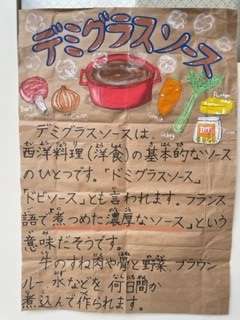 デミグラスソース
デミグラスソースは
西洋料理(洋食)の基本的なソース
のひとつです。「ドミグラスソース」
「ドビソース」とも言われます。フランス
語で煮つめた濃厚なソース」という
意味だそうです。
牛のすね肉や骨と野菜、ブラウン
ルー、水などを何日間か
煮込んで作られます。